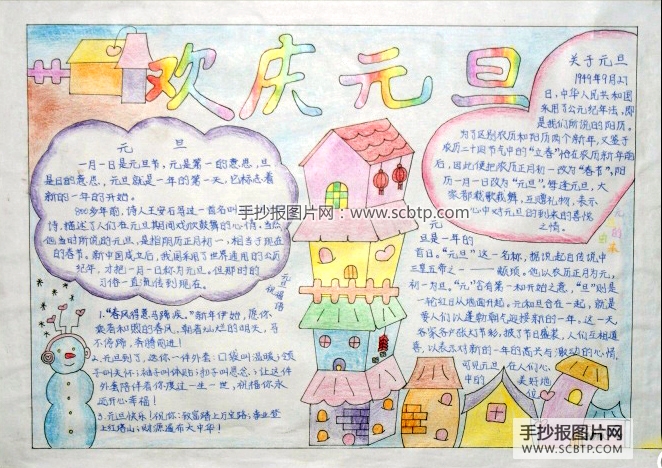 欢庆元旦
元 旦
一月一日是元旦节，元是第一的意思，旦
是日的意思，元旦就是一年的第一天，它标志着
新的一年的开始。
800多年前，诗人王安石写过一首名叫
诗，描述了人们在元旦期间戏欢鼓舞的心情。当然
他当时所说的元旦，是指阴历正月初一，相当于现在
的春节。新中国成立后，我国采用了世界通用的公历
纪年，才把一月一日称为元旦。但那时的
习俗一直流传到现在。
元旦祝福语
1."春风得意马蹄疾。"新年伊始，愿你
乘着和煦的春风，朝着灿烂的明天，马
不停蹄，奔腾前进！
2.元旦到了，送你一件外套：口袋叫温暖；领
子叫关怀；袖子叫体贴；扣子叫思念；让这件
外套陪伴着你度过一生一世，祝福你永
远开心幸福！
3.元旦快乐！祝你：致富踏上万宝路；事业登
上红塔山；财源遍布大中华！
关于元旦
1949年9月27
日，中华人民共和国
采用了公元纪年法，即
是我们所说的阳历。
为了区别农历和阳历两个新年，又鉴于
农历二十四节气中的"立春"恰在农历新年前
后，因此便把农历正月初一改为"春节"，阳
历一月一日改为"元旦"。每逢元旦，大
家都载歌载舞，互赠礼物，表示
心中对元旦的到来的喜悦
之情。
元
旦是一年的
首日。"元旦"这一名称，据说起自传说中
三皇五帝之一——颛顼。他以农历正月为元，
初一为旦。"元"者有第一和开始之意，"旦"则是
一轮红日从地面升起。元和旦合在一起，就是
要人们以蓬勃朝气迎接新的一年。这一天
客家各户张灯节彩，披了节日盛装，人们互相道
喜，以表示对新的一年的高兴与激动的心情。
可见元旦，在人们心
中的
美好地
位
手抄报图片网：www.scbtp.com
手抄报图片网
WWW.SCBTP.COM